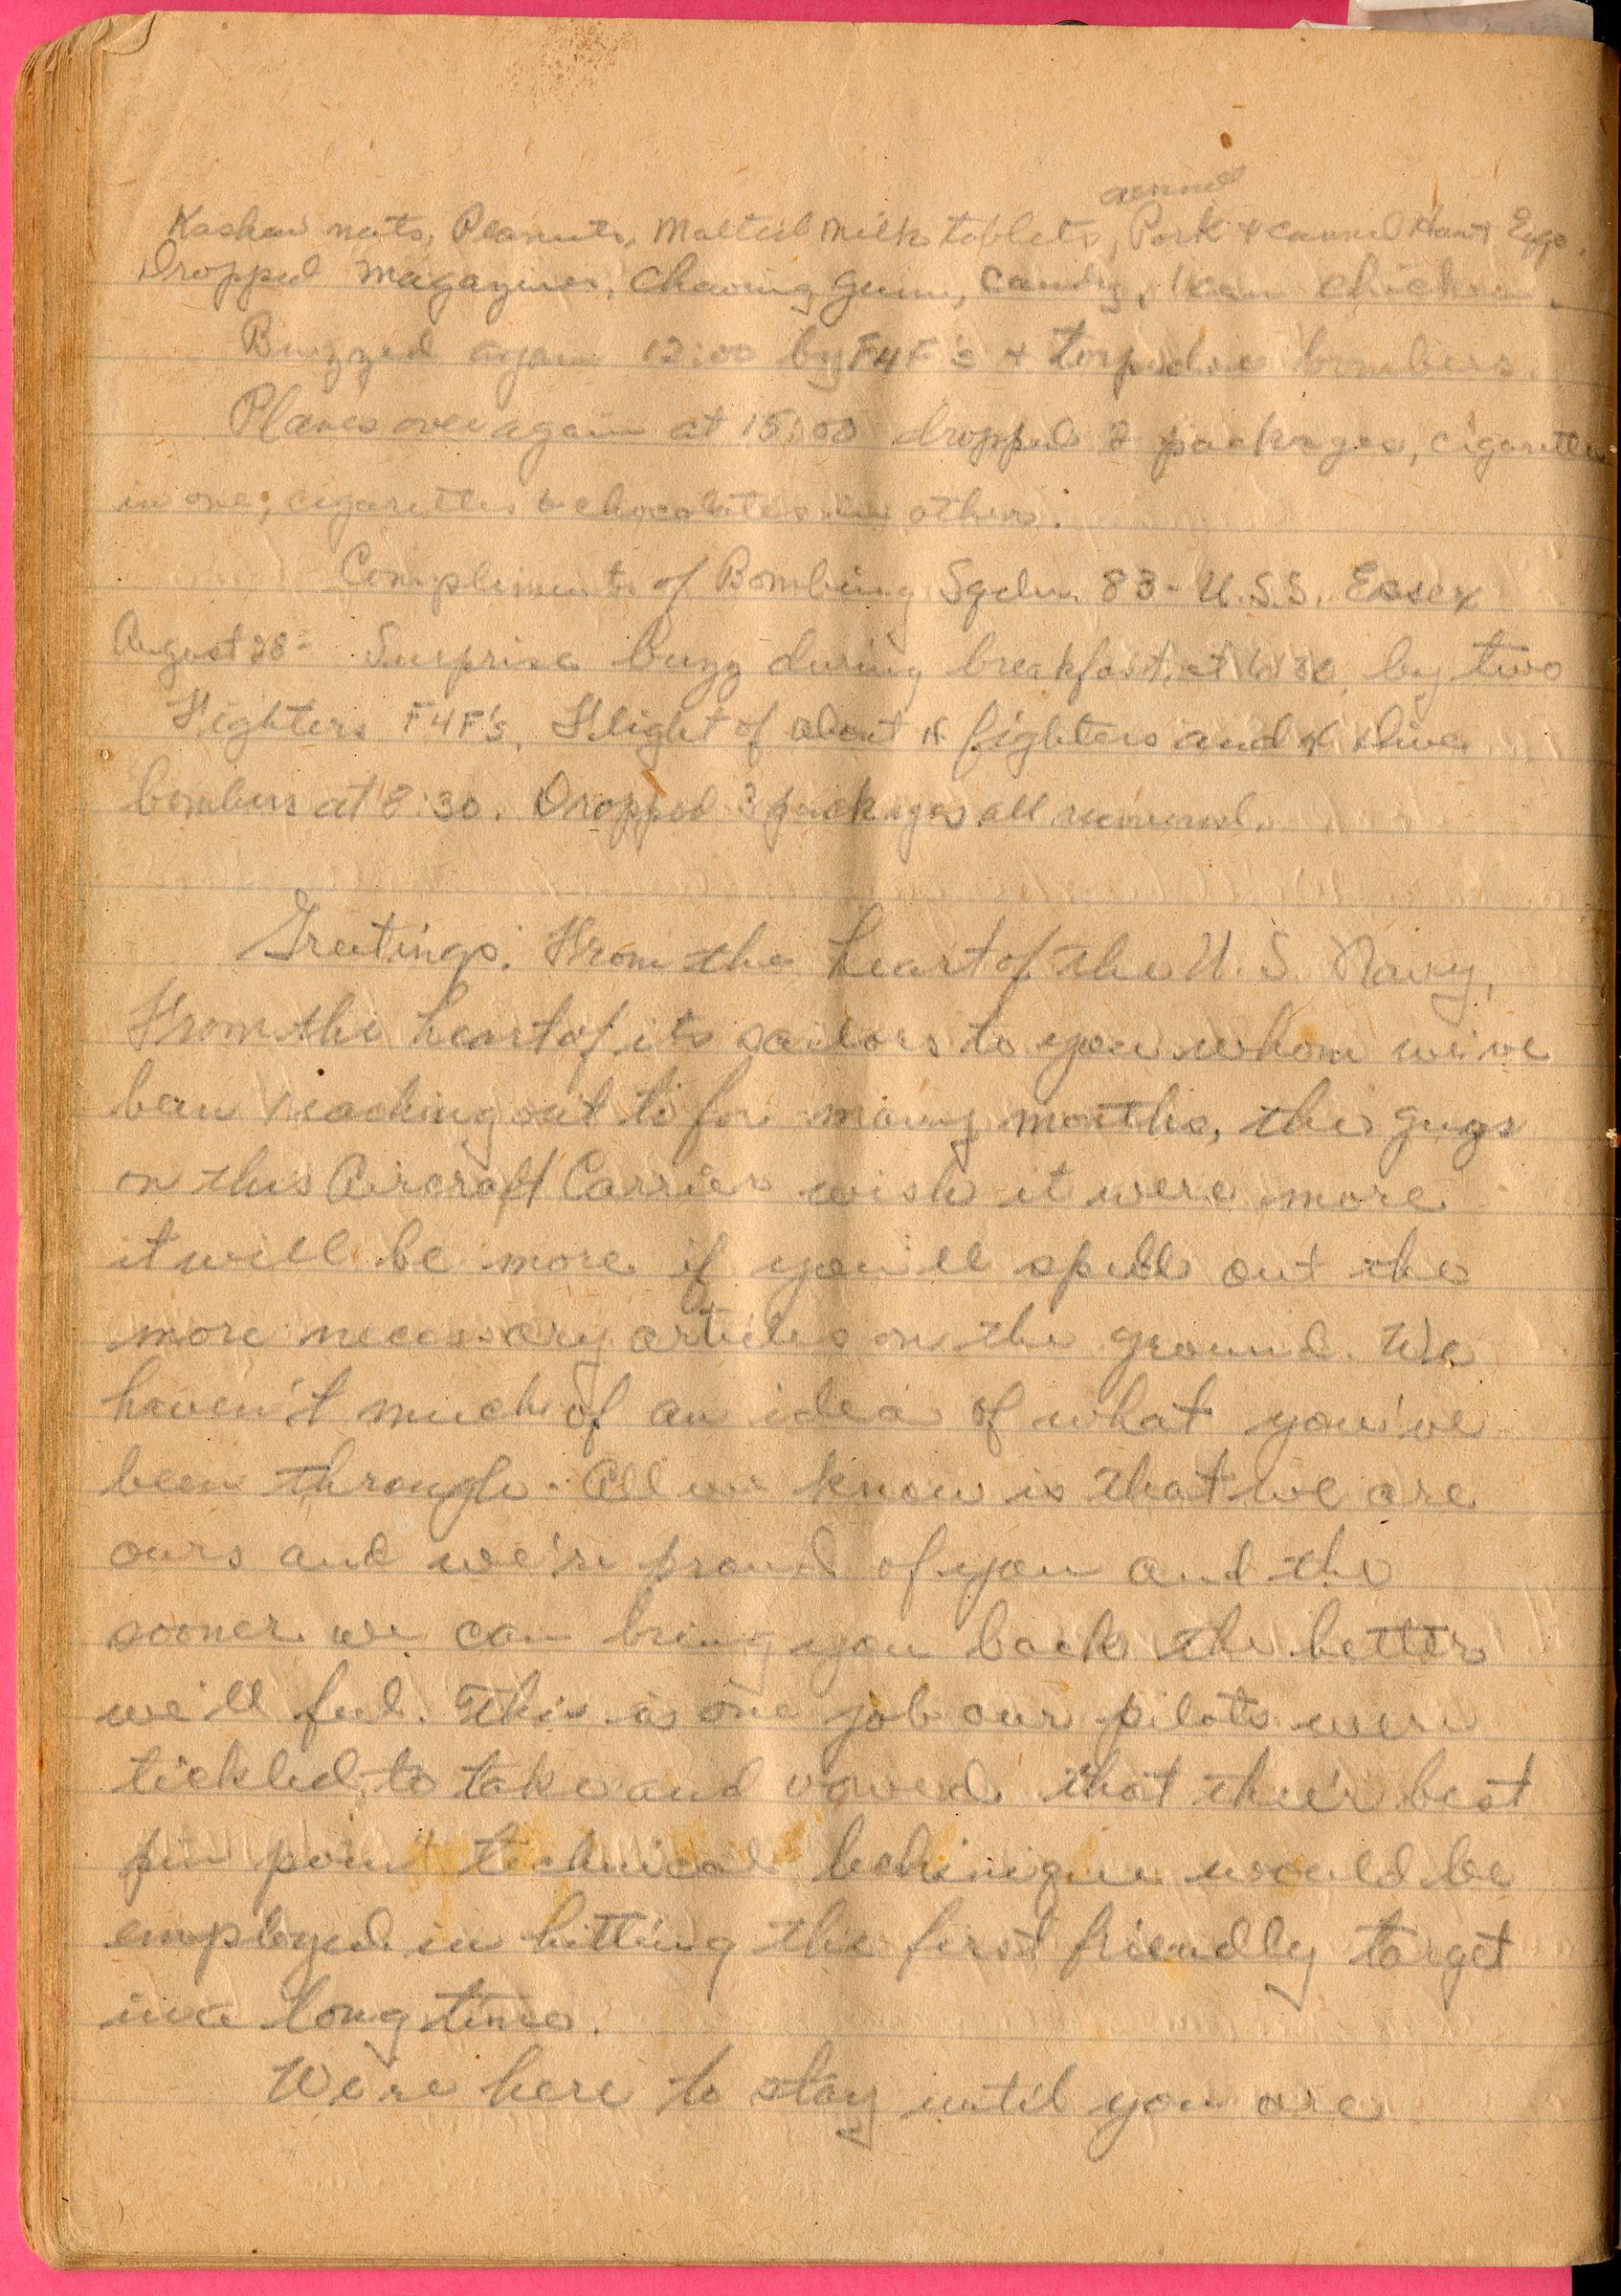 canned
Kashew nuts, Peanuts, Malted milk tablets, Pork & canned Ham & Eggs.
Dropped magazines, Chewing gum, candy, 1 can chicken.
Buzzed again 12:00 by F4F's & torpedoe bombers.
Planes over again at 15:00 dropped 2 packages, cigarettes
in one, cigarettes & chocolates in others.
Compliments of Bombing Sqdn. 83 - U.S.S. Essex
August 28 - Surprise buzz during breakfast, at 6:30, by two
Fighters F4F's. Flight of about 4 fighters and 4 dive
bombers at 8:30. Dropped 3 packages all recovered.
Greetings: From the heart of the U.S. Navy,
From the heart of its sailors to you whom we've
been reaching out to for many months, the guys
on this Aircraft Carrier wish it were more
it will be more if you'll spell out the
more necessary articles on the ground. We
haven't much of an idea of what you've
been through. All we know is that we are
ours and we're proud of you and the
sooner we can bring you back the better
we'll feel. This is one job our pilots were
tickled to take and vowed that their best
pin point technical technique would be
employed in hitting the first friendly target
in a long time.
We're here to stay until you are